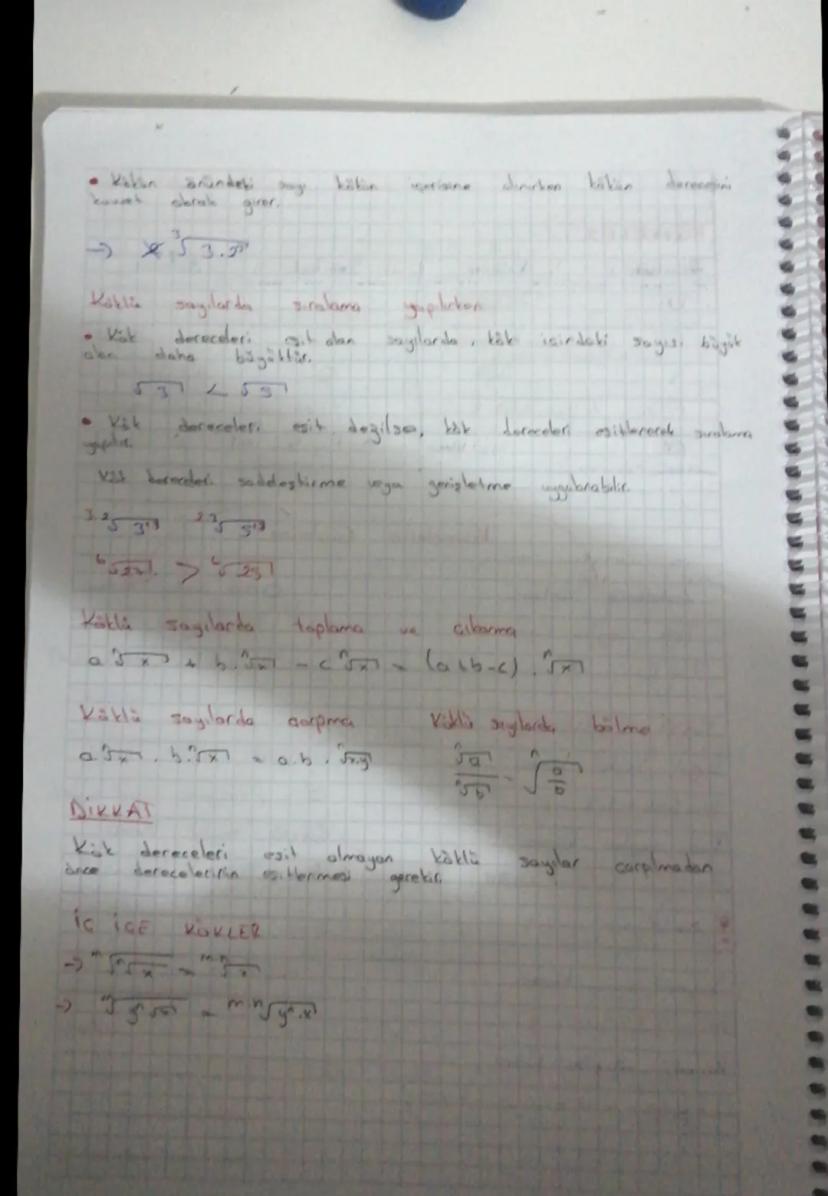 • Kökün önündeki sayı kökün içerisine alınırken kökün derecesini
kuvvet olarak girer.
→ 2 ³√3.2³
Köklü sayılarda sıralama yapılırken
• Kök dereceleri eşit olan sayılarda, kök içindeki sayısı büyük
olan daha büyüktür.
√3 < √5
• Kök dereceleri eşit değilse, kök dereceleri eşitlenerek sıralama
yapılır.
Kök dereceleri sadeleştirme veya genişletme uygulanabilir.
3.2√3¹·³ 2.3√5¹·²
⁶√27 > ⁶√25
Köklü sayılarda toplama ve çıkarma
a ⁿ√x + b.ⁿ√x - c ⁿ√x = (a+b-c).ⁿ√x
Köklü sayılarda çarpma Köklü sayılarda bölme
a.ⁿ√x . b.ⁿ√x = a.b.ⁿ√x.y ⁿ√a / ⁿ√b = ⁿ√a/b
DİKKAT
Kök dereceleri eşit olmayan köklü sayılar çarpılmadan
önce derecelerinin eşitlenmesi gerekir.
İÇ İÇE KÖKLER
→ ᵐ√ⁿ√x = ᵐ·ⁿ√x
→ ᵐ√y ⁿ√x = m.n√yⁿ.x